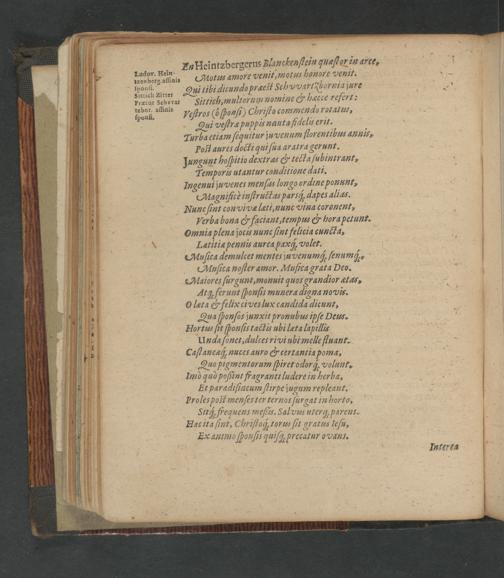 En Heintzbergerus Blanckenstein quæstor in arce,
Motus amore venit, motus honore venit.
Qui tibi dicundo præest Schvvartzbornia jure
Sittich, multorum nomine & hæcce refert:
Vestros (ô sponsi) Christo commendo rotatus,
Qui vestra puppis nauta fidelis erit.
Turba etiam sequitur juvenum florentibus annis,
Post aures docti qui sua aratra gerunt.
Jungunt hospitio dextras & tecta subintrant,
Temporis utantur conditione dati.
Ingenui juvenes mensas longo ordine ponunt,
Magnificè instructas parsq́, dapes alias.
Nunc sint conviva læti, nunc vina coronent,
Verba bona & faciant, tempus & hora petunt.
Omnia plena jocis nunc sint felicia cuncta,
Lætitia pennis aurea paxq́, volet.
Musica demulcet mentes juvenumq́, senumq́,
Musica noster amor. Musica grata Deo.
Maiores surgunt, monuit quos grandior ætas,
Atq́, ferunt sponsis munera digna novis.
O læta & felix cives lux candida dicunt,
Qua sponsos junxit pronubus ipse Deus.
Hortus sit sponsis tactis ubi lata lapillis
Unda sonet, dulces rivi ubi melle fluant.
Castaneæq́, nuces auro & certantia poma,
Quo pigmentorum spiret odorq́, volunt.
Imò quò possint fragranti ludere in herba,
Et paradisiacum stirpe jugum repleant.
Proles post menses ter ternos surgat in horto,
Sitq́, frequens messis. Salvus uterq, parens.
Hæc ita sint, Christoq́, torus sit gratus Iesu,
Ex animo sponsis quisq́, precatur ovans.
Interea
Ludov. Hein-
tzenberg affinis
sponsi.
Sittich Zitter
Prætor Schvvar
tzbor. affinis
sponsi.